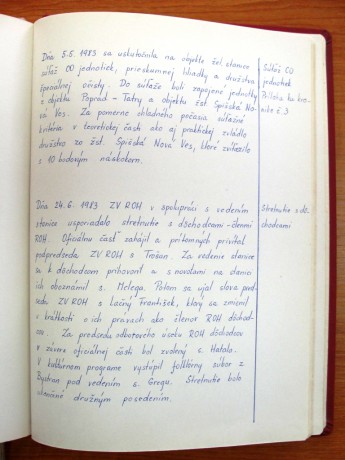 Dňa 5.5.1983 sa uskutočnila na objekte žel. stanice
súťaž CO jednotiek, prieskumnej hliadky a družstva
špeciálnej očisty. Do súťaže boli zapojené jednotky
z objektu Poprad - Tatry a objektu žst. Spišská No-
vá Ves. Za pomerne chladného počasia súťažné
kritéria v teoretickej časti ako aj praktickej zvládlo
družstvo zo žst. Spišská Nová Ves, ktoré zvíťazilo
s 10 bodovým náskokom.
Súťaž CO
jednotiek
Príloha ku kro-
nike č. 3
Dňa 24.6.1983 ZV ROH v spolupráci s vedením
stanice usporiadalo stretnutie s dôchodcami - členmi
ROH. Oficiálnu časť zahájil a prítomných privítal
podpredseda ZV ROH s. Trošan. Za vedenie stanice
sa k dôchodcom prihovoril a s novotami na stanici
ich oboznámil s. Melega. Potom sa ujal slova pred-
seda ZV ROH s. Lačný František, ktorý sa zmienil
v krátkosti o ich právach ako členov ROH dôchod-
cov. Za predsedu odborového úseku ROH dôchodcov
v závere oficiálnej časti bol zvolený s. Hatala.
V kultúrnom programe vystúpil folklórny súbor z
Bystran pod vedením s. Gregu. Stretnutie bolo
ukončené družným posedením.
Stretnutie s dô-
chodcami